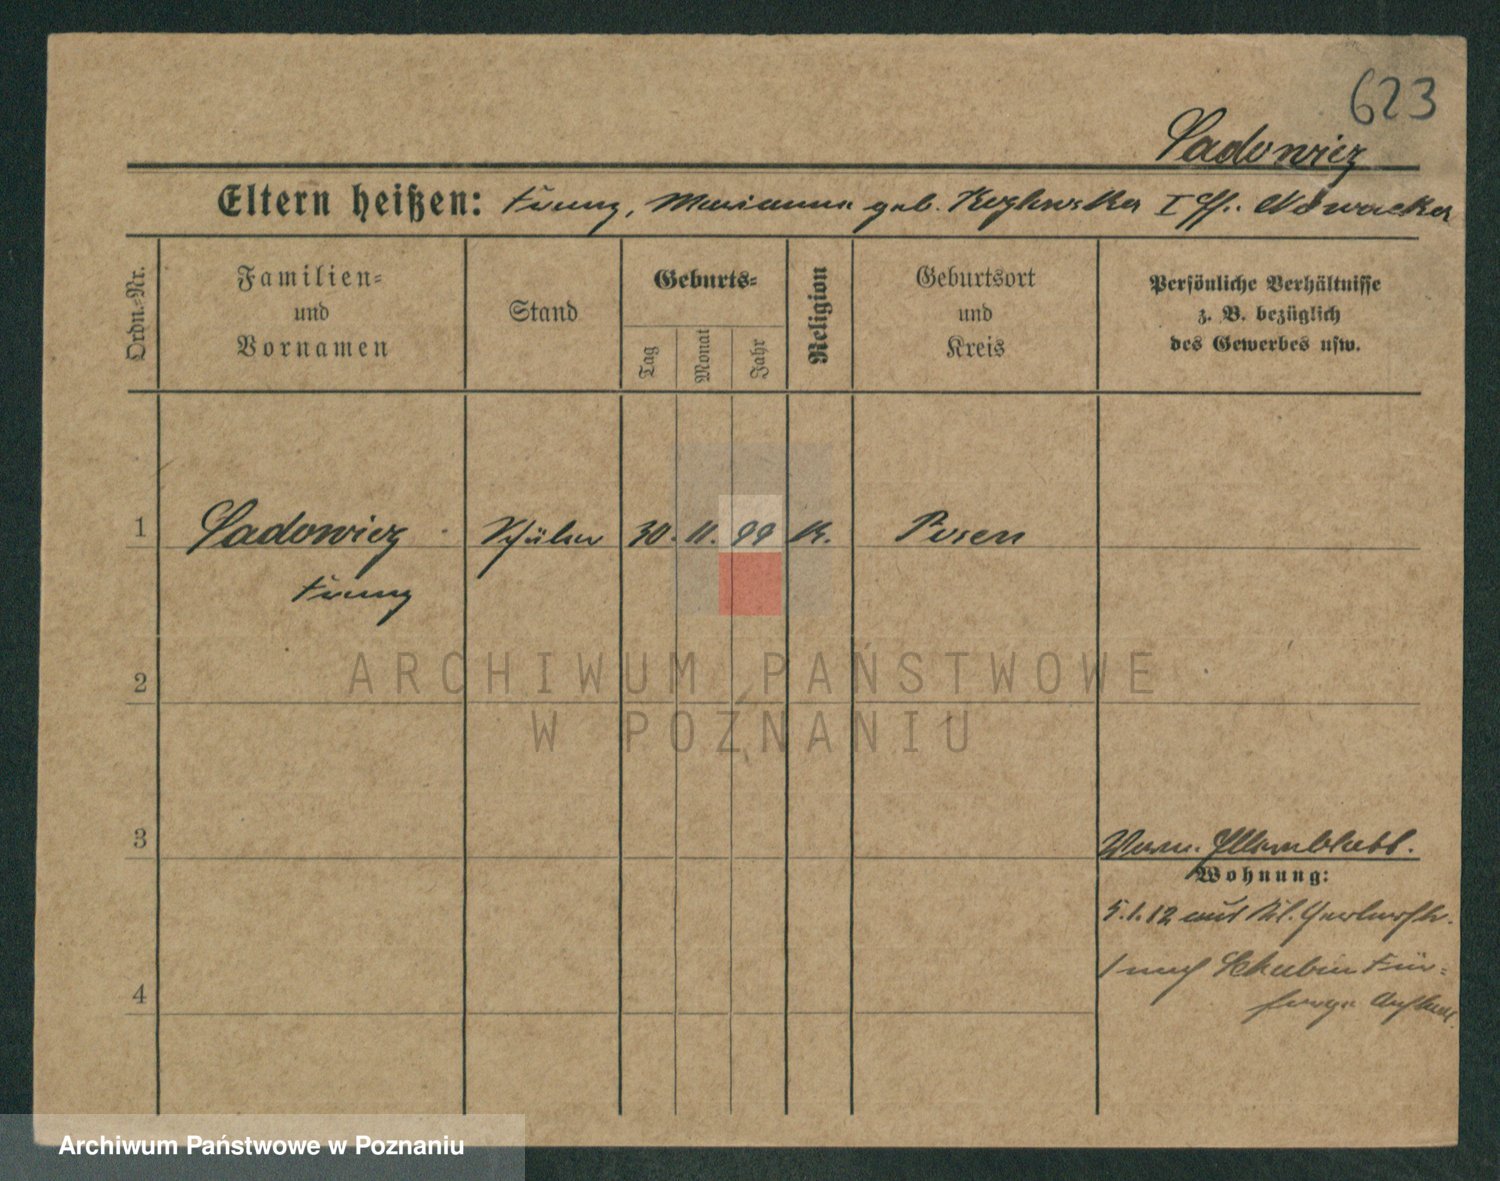 623
Sadowicz
Eltern heißen: Franz, Marianna geb. Koglewska I Eh. Nowacka
Ordn.-Nr.
Familien=
und
Vornamen
Stand
Geburts=
Tag
Monat
Jahr
Religion
Geburtsort
und
Kreis
Persönliche Verhältnisse
z. B. bezüglich
des Gewerbes usw.
1 Sadowicz Schüler 30. 11. 99 K. Posen
Franz
2
3
4
Wohnung:
5.1.12 aus Kl. Gerberstr.
1 nach Schubin Für=
sorge Anstalt.
ARCHIWUM PAŃSTWOWE
W POZNANIU
Archiwum Państwowe w Poznaniu